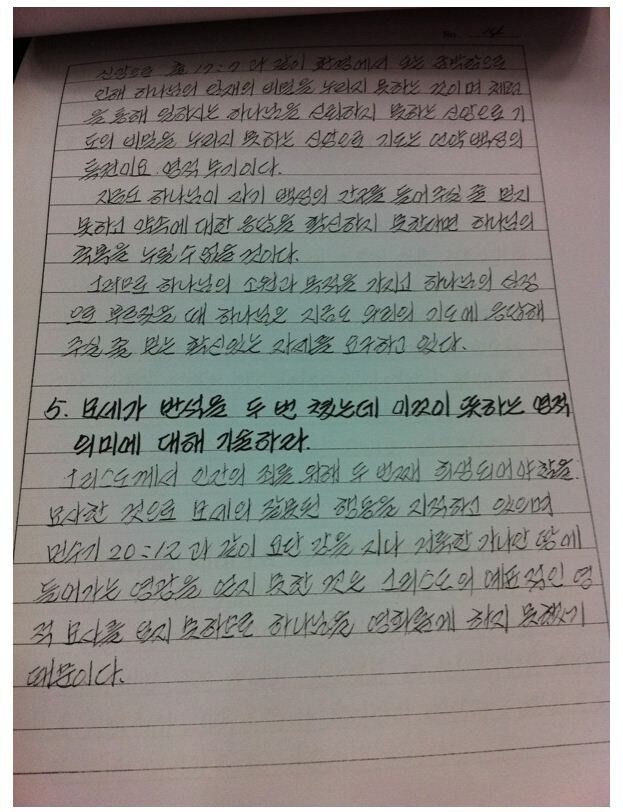 No. 14
신앙으로 출 17:7 과 같이 환경에서 오는 핍박함으로
인해 하나님의 임재의 비밀을 누리지 못하는 것이며 체험
을 통해 일하시는 하나님을 신뢰하지 못하는 신앙으로 기
도의 비밀을 누리지 못하는 신앙으로 기도는 언약 백성의
특권이요 영적 무기이다.
지금도 하나님이 자기 백성의 간구를 들어주실 줄 믿지
못하고 약속에 대한 응답을 확신하지 못한다면 하나님의
축복을 누릴 수 없을 것이다.
그러므로 하나님의 소원과 목적을 가지고 하나님의 심정
으로 부르짖을 때 하나님은 지금도 우리의 기도에 응답해
주실 줄 믿는 확신있는 자세를 요구하고 있다.
5. 모세가 반석을 두 번 쳤는데 이것이 뜻하는 영적
의미에 대해 기술하라.
그리스도께서 인간의 죄를 위해 두 번째 희생되어야 함을
묘사한 것으로 모세의 잘못된 행동을 지적하고 있으며
민수기 20:12 과 같이 요단 강을 지나 거룩한 가나안 땅에
들어가는 영광을 얻지 못한 것은 그리스도의 예표적인 영
적 묘사를 하지 못하므로 하나님을 영화롭게 하지 못했기
때문이다.